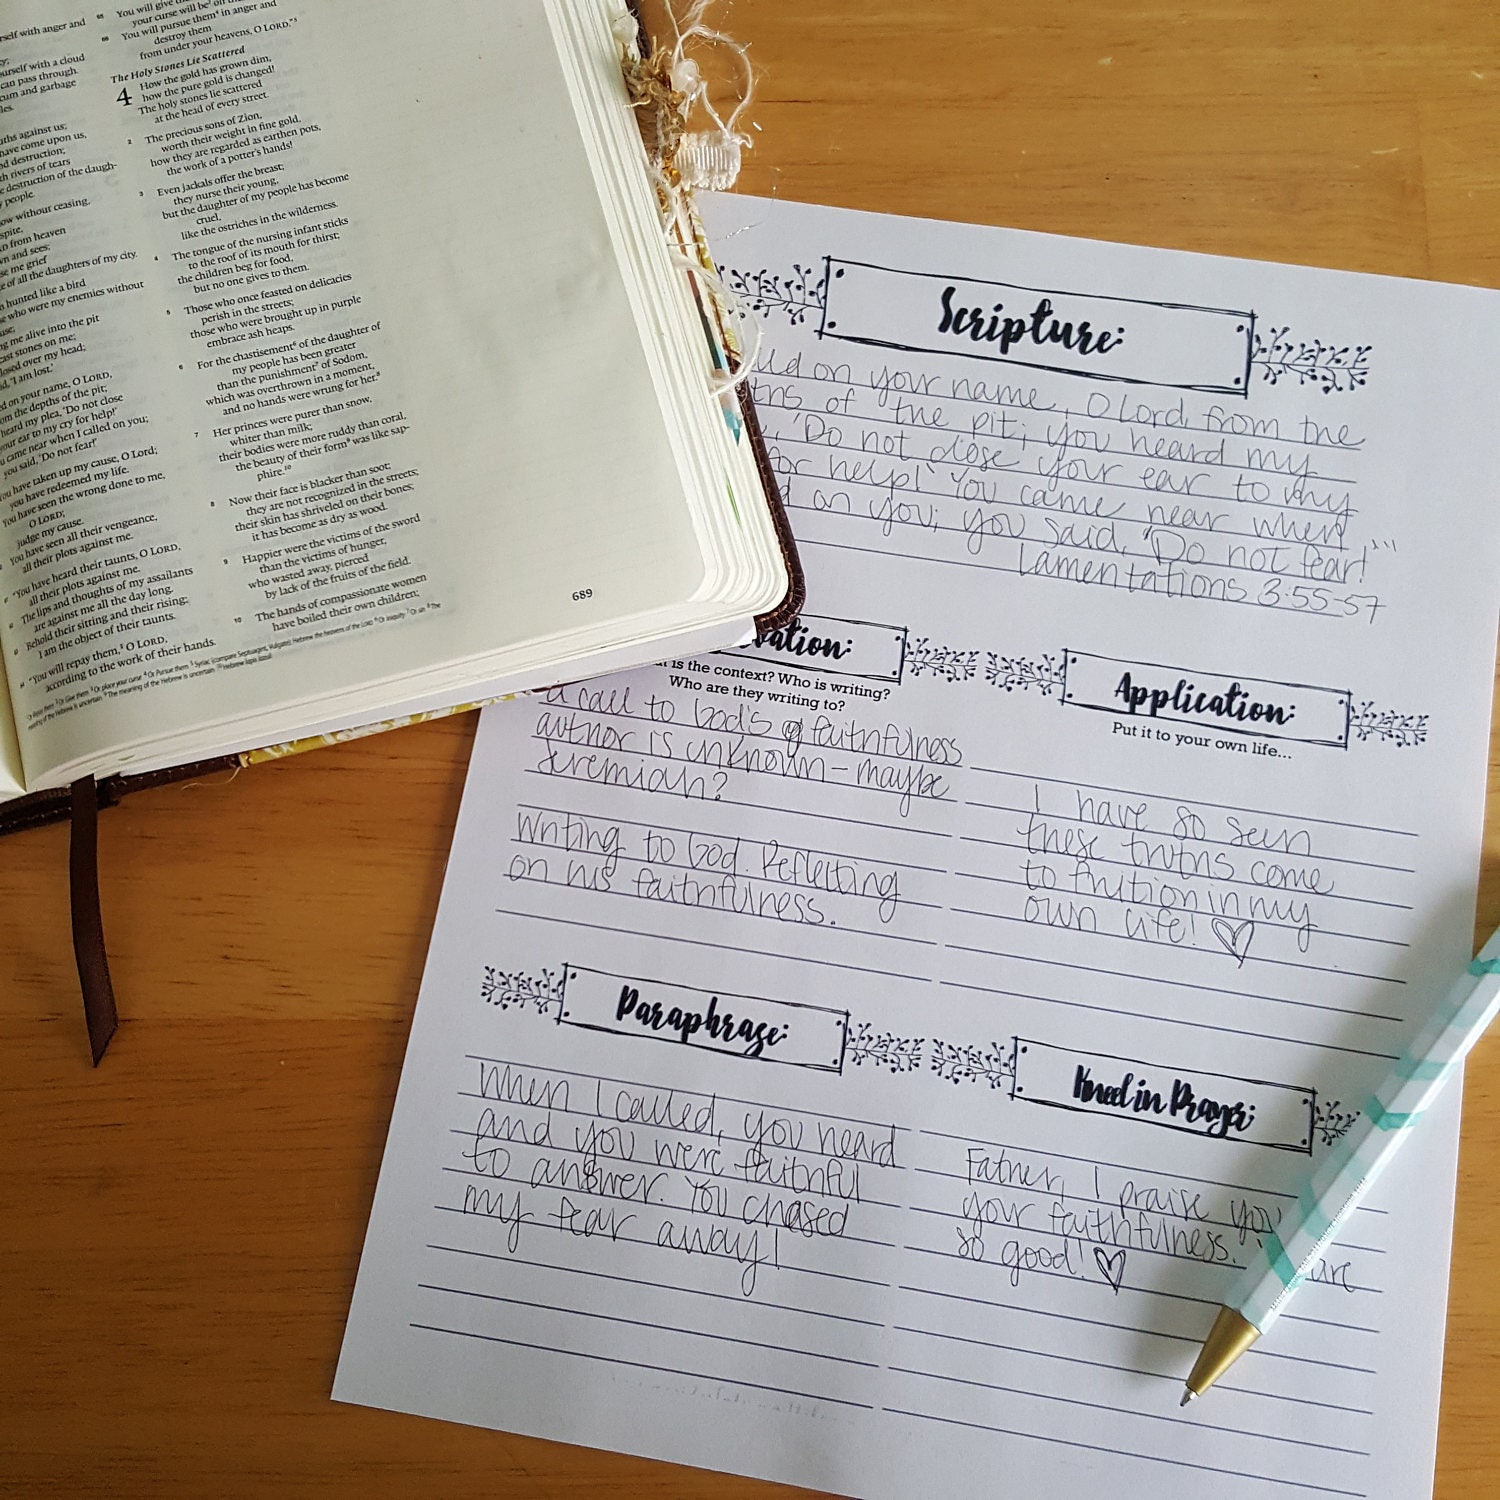 rself with anger and
urself with a cloud
can pass through.
cum and garbage
ples.
uths against us;
have come upon us,
nd destruction;
th rivers of tears
e destruction of the daugh-
y people.
ow without ceasing,
spite,
n from heaven
wn and sees;
se me grief
e of all the daughters of my city.
n hunted like a bird
e who were my enemies without
use;
ng me alive into the pit
cast stones on me;
losed over my head;
id, 'I am lost.'
ed on your name, O LORD,
om the depths of the pit;
heard my plea, 'Do not close
your ear to my cry for help!'
u came near when I called on you;
you said, 'Do not fear!'
You have taken up my cause, O Lord;
you have redeemed my life.
You have seen the wrong done to me,
O LORD;
judge my cause.
You have seen all their vengeance,
all their plots against me.
"You have heard their taunts, O LORD,
all their plots against me.
The lips and thoughts of my assailants
are against me all the day long.
Behold their sitting and their rising;
I am the object of their taunts.
"You will repay them, O LORD,
according to the work of their hands.
65 You will give them
your curse will be
66 You will pursue them in anger and
destroy them
from under your heavens, O LORD."
The Holy Stones Lie Scattered
4 How the gold has grown dim,
how the pure gold is changed!
The holy stones lie scattered
at the head of every street.
2 The precious sons of Zion,
worth their weight in fine gold,
how they are regarded as earthen pots,
the work of a potter's hands!
3 Even jackals offer the breast;
they nurse their young,
but the daughter of my people has become
cruel,
like the ostriches in the wilderness.
4 The tongue of the nursing infant sticks
to the roof of its mouth for thirst;
the children beg for food,
but no one gives to them.
5 Those who once feasted on delicacies
perish in the streets;
those who were brought up in purple
embrace ash heaps.
6 For the chastisement of the daughter of
my people has been greater
than the punishment of Sodom,
which was overthrown in a moment,
and no hands were wrung for her.
7 Her princes were purer than snow,
whiter than milk;
their bodies were more ruddy than coral,
the beauty of their form was like sap-
phire.
8 Now their face is blacker than soot;
they are not recognized in the streets;
their skin has shriveled on their bones;
it has become as dry as wood.
9 Happier were the victims of the sword
than the victims of hunger,
who wasted away, pierced
by lack of the fruits of the field.
10 The hands of compassionate women
have boiled their own children;
689
Scripture:
on your name, O Lord, from the
ths of the pit; you heard my
'Do not close your ear to my
for help!' You came near when
on you; you said, 'Do not fear!'"
Lamentations 3:55-57
vation:
is the context? Who is writing?
Who are they writing to?
a call to God's faithfulness
author is unknown - maybe
Jeremiah?
Writing to God. Reflecting
on his faithfulness.
Application:
Put it to your own life...
I have so seen
these truths come
to fruition in my
own life! ♡
Paraphrase:
When I called, you heard
and you were faithful
to answer. You chased
my fear away!
Kneel in Prayer:
Father, I praise you
your faithfulness.
are
so good! ♡